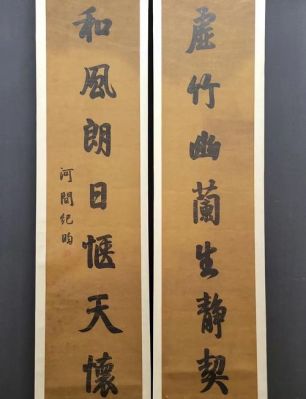 虚竹幽蘭生静契
和風朗日愜天懷
河間紀昀